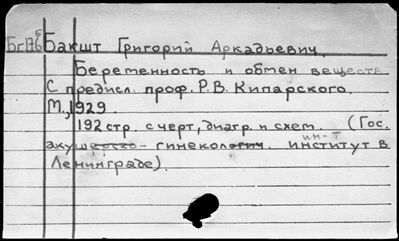 Бг176 Бакшт Григорий Аркадьевич.
Беременность и обмен веществ
С предисл. проф. Р.В. Кипарского.
М., 1929.
192 стр. с черт., диагр. и схем. (Гос.
акушерско-гинекологич. ин-т институт в
Ленинграде).